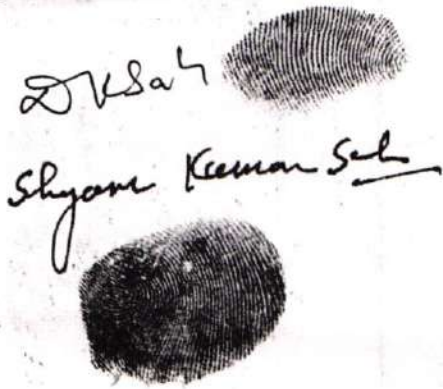 DKSah
Shyam Kumar Sah